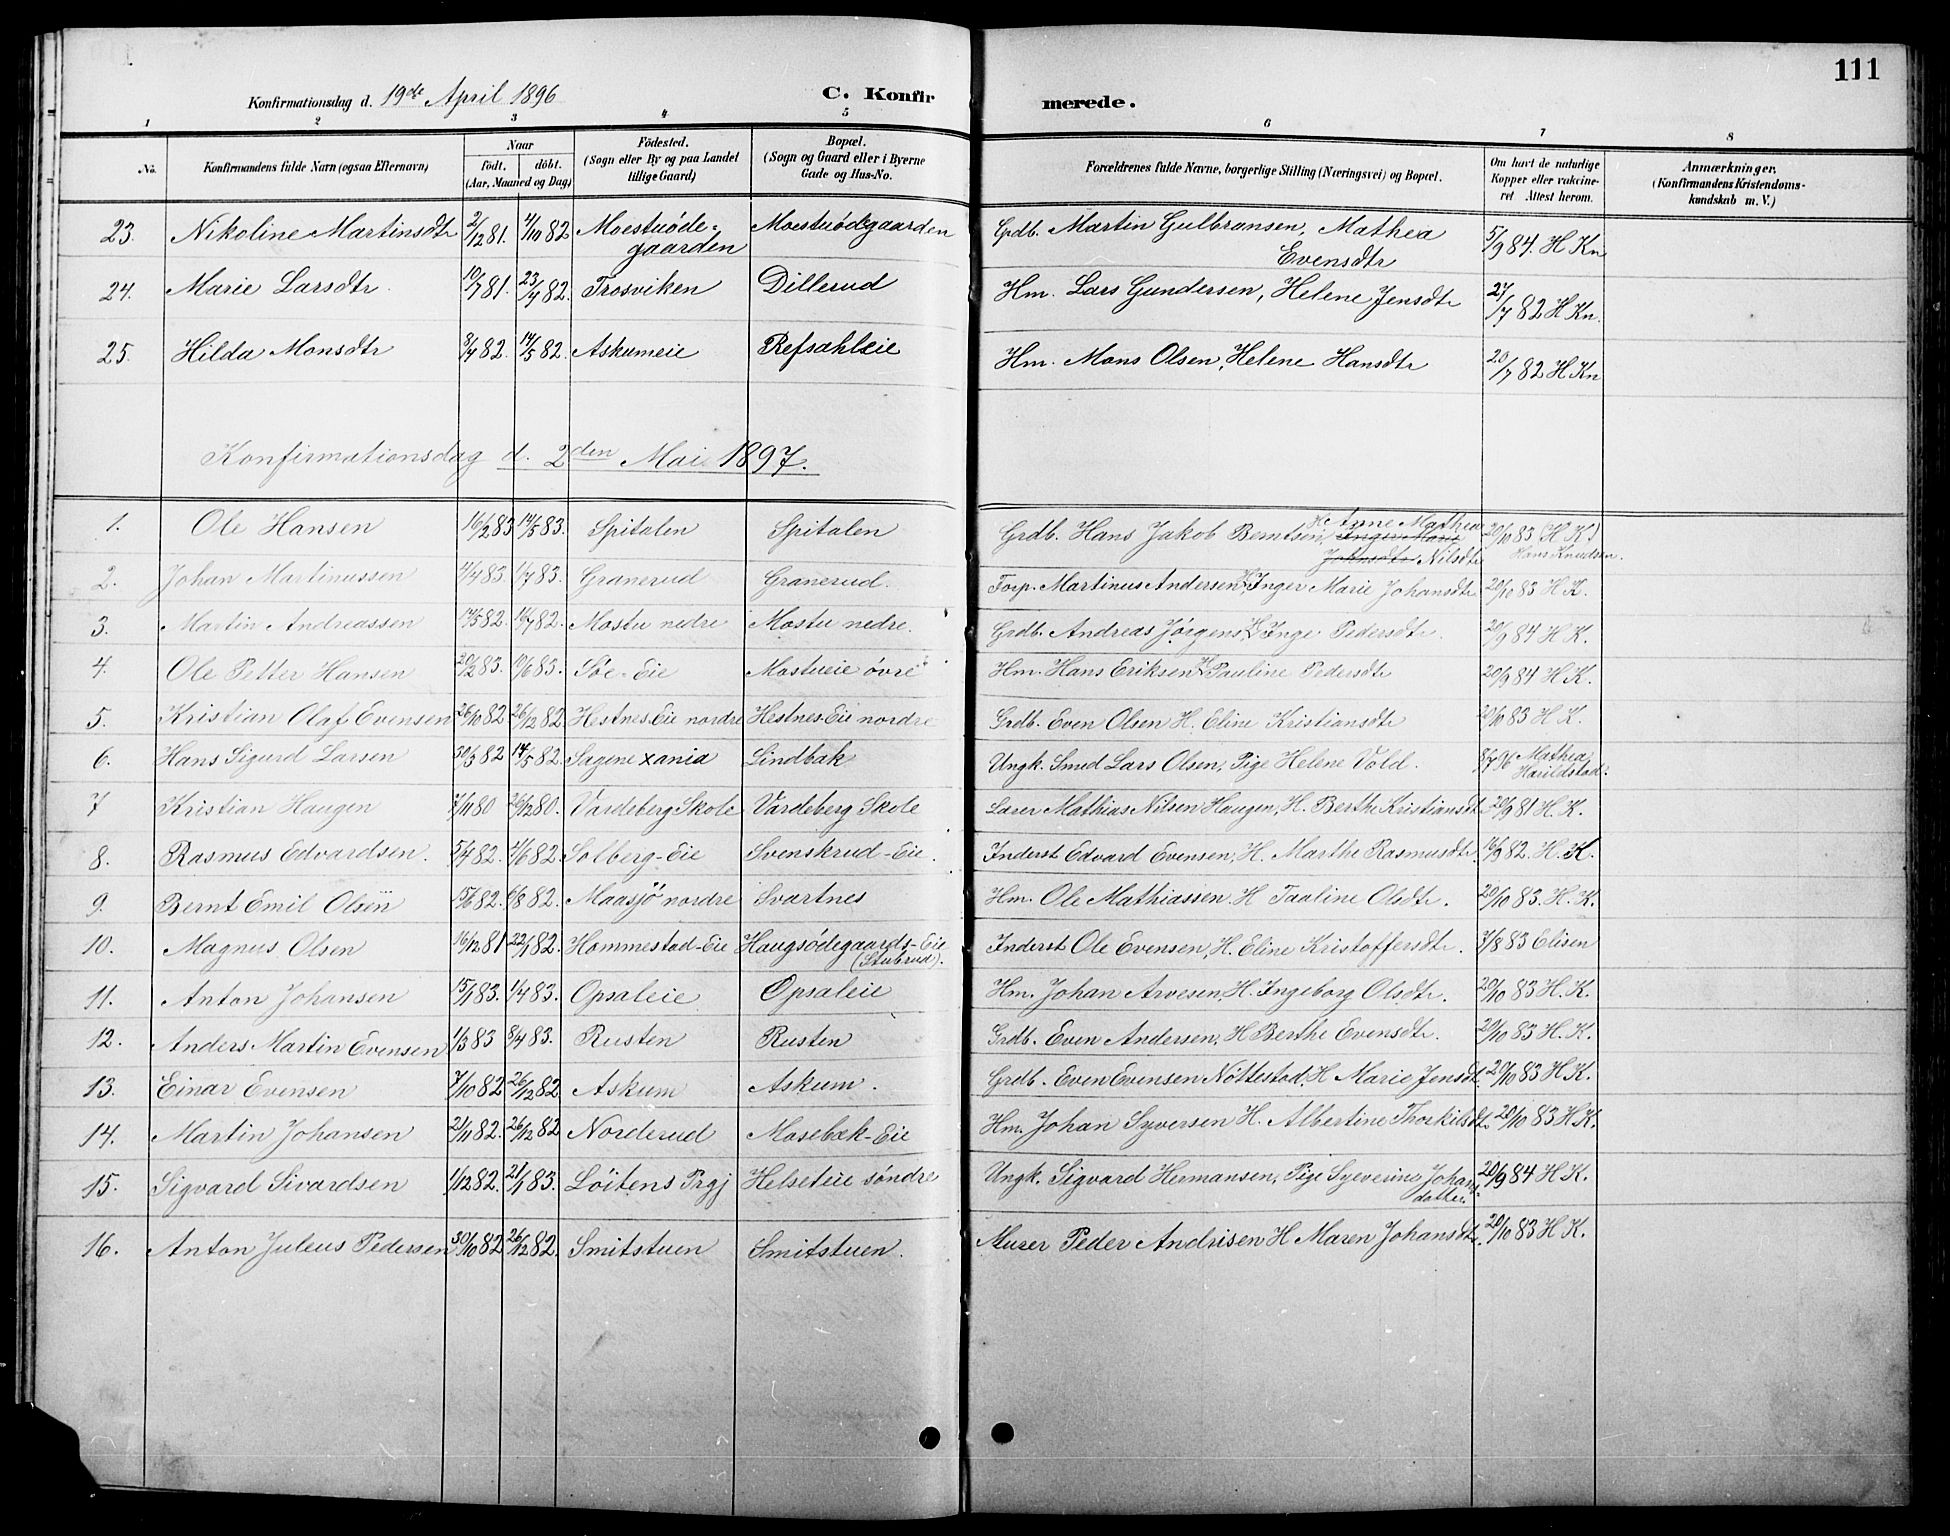 111
Konfirmationsdag d. 19de April 1896
C. Konfirmerede.
1 2 3 4 5 6 7 8
No. Konfirmandens fulde Navn (ogsaa Efternavn) Naar födt. döbt. (Aar, Maaned og Dag) Födested. (Sogn eller By og paa Landet tillige Gaard) Bopæl. (Sogn og Gaard eller i Byerne Gade og Hus-No. Forældrenes fulde Navne, borgerlige Stilling (Næringsvei) og Bopæl. Om havt de naturlige Kopper eller vakcineret Attest herom. Anmærkninger. (Konfirmandens Kristendomskundskab m. V.)
23. Nikoline Martinsdtr 2/12 81. 4/10 82 Moestuödegaarden Moestuödegaarden Grdb. Martin Gulbransen, Mathea Evensdtr 5/9 84. H Kn
24. Marie Larsdtr. 10/7 81. 23/4 82. Trosviken Dillerud Hm. Lars Gundersen, Helene Jensdtr 27/7 82 H Kn.
25. Hilda Monsdtr 3/4 82. 14/5 82. Askumeie Refsahleie Hm. Mons Olsen, Helene Hansdtr 20/7 82 H Kn
Konfirmationsdag d. 2den Mai 1897.
1. Ole Hansen 16/2 83 14/5 83. Spitalen Spitalen Grdb. Hans Jakob Berntsen, H. Anne Mathea Inger Marie Johnsdtr Nilsdtr 20/10 83 (H K.) Hans Knudsen.
2. Johan Martinussen 4/4 83. 1/7 83. Granerud Granerud. Torp. Martinus Andersen H. Inger Marie Johansdtr 20/10 83 H K.
3. Martin Andreassen 17/5 82. 16/7 82. Mostu nedre Mostu nedre. Grdb. Andreas Jørgens H. Inge Pedersdtr. 20/9 84 H K.
4. Ole Petter Hansen 20/2 83. 10/6 83. Söe-Eie Mostueie övre Hm. Hans Eriksen H. Pauline Pedersdtr 20/9 84 H K.
5. Kristian Olaf Evensen 26/10 82 26/12 82. Hestnes-Eie nordre Hestnes-Eie nordre Grdb. Even Olsen H. Eline Kristiansdtr 20/10 83 H K.
6. Hans Sigurd Larsen 30/3 82 14/5 82. Sagene xania Lindbak Ungk. Smed Lars Olsen, Pige Helene Vold. 8/7 96 Mathea Harildstad.
7 Kristian Haugen 7/11 80 26/12 80. Vardeberg Skole Vardeberg Skole Lærer Mathias Nilsen Haugen, H. Berthe Kristiansdtr 20/9 81 H. K.
8. Rasmus Edvardsen. 5/4 82. 4/6 82. Solberg-Eie Svenskrud-Eie. Inderst Edvard Evensen, H. Marthe Rasmusdtr. 16/9 82. H. K.
9. Bernt Emil Olsen 15/6 82. 6/8 82. Maasjö nordre Svartnes Hm. Ole Mathiassen H Pauline Olsdtr. 20/10 83. H. K.
10. Magnus Olsen 16/12 81 22/1 82. Hommestad-Eie Haugsödegaards-Eie (Stubrud). Inderst Ole Evensen, H. Eline Kristoffersdtr. 7/8 83 Elisen
11. Anton Johansen 15/1 83. 1/4 83. Opsaleie Opsaleie Hm. Johan Arvesen, H. Ingeborg Olsdtr. 20/10 83 H. K.
12. Anders Martin Evensen 1/3 83 8/4 83. Rusten Rusten Grdb. Even Andersen, H Berthe Evensdtr. 20/10 83. H. K.
13. Einar Evensen 7/10 82 26/12 82. Askum Askum. Grdb. Even Evensen Nöttestad, H Marie Jensdtr. 20/10 83 H K.
14. Martin Johansen 21/11 82. 26/12 82 Norderud Mosebæk-Eie Hm. Johan Syversen H. Albertine Thorkilsdtr. 20/10 83 H K.
15. Sigvard Sivardsen 1/12 82. 21/1 83. Löitens Prgj Helseteie söndre Ungk. Sigvard Hermansen, Pige Syverine Johansdatter 20/9 84 H K.
16. Anton Juleus Pedersen 30/10 82 26/12 82. Smitstuen Smitstuen. Murer Peder Andrisen H Maren Johansdtr. 20/10 83 H K.